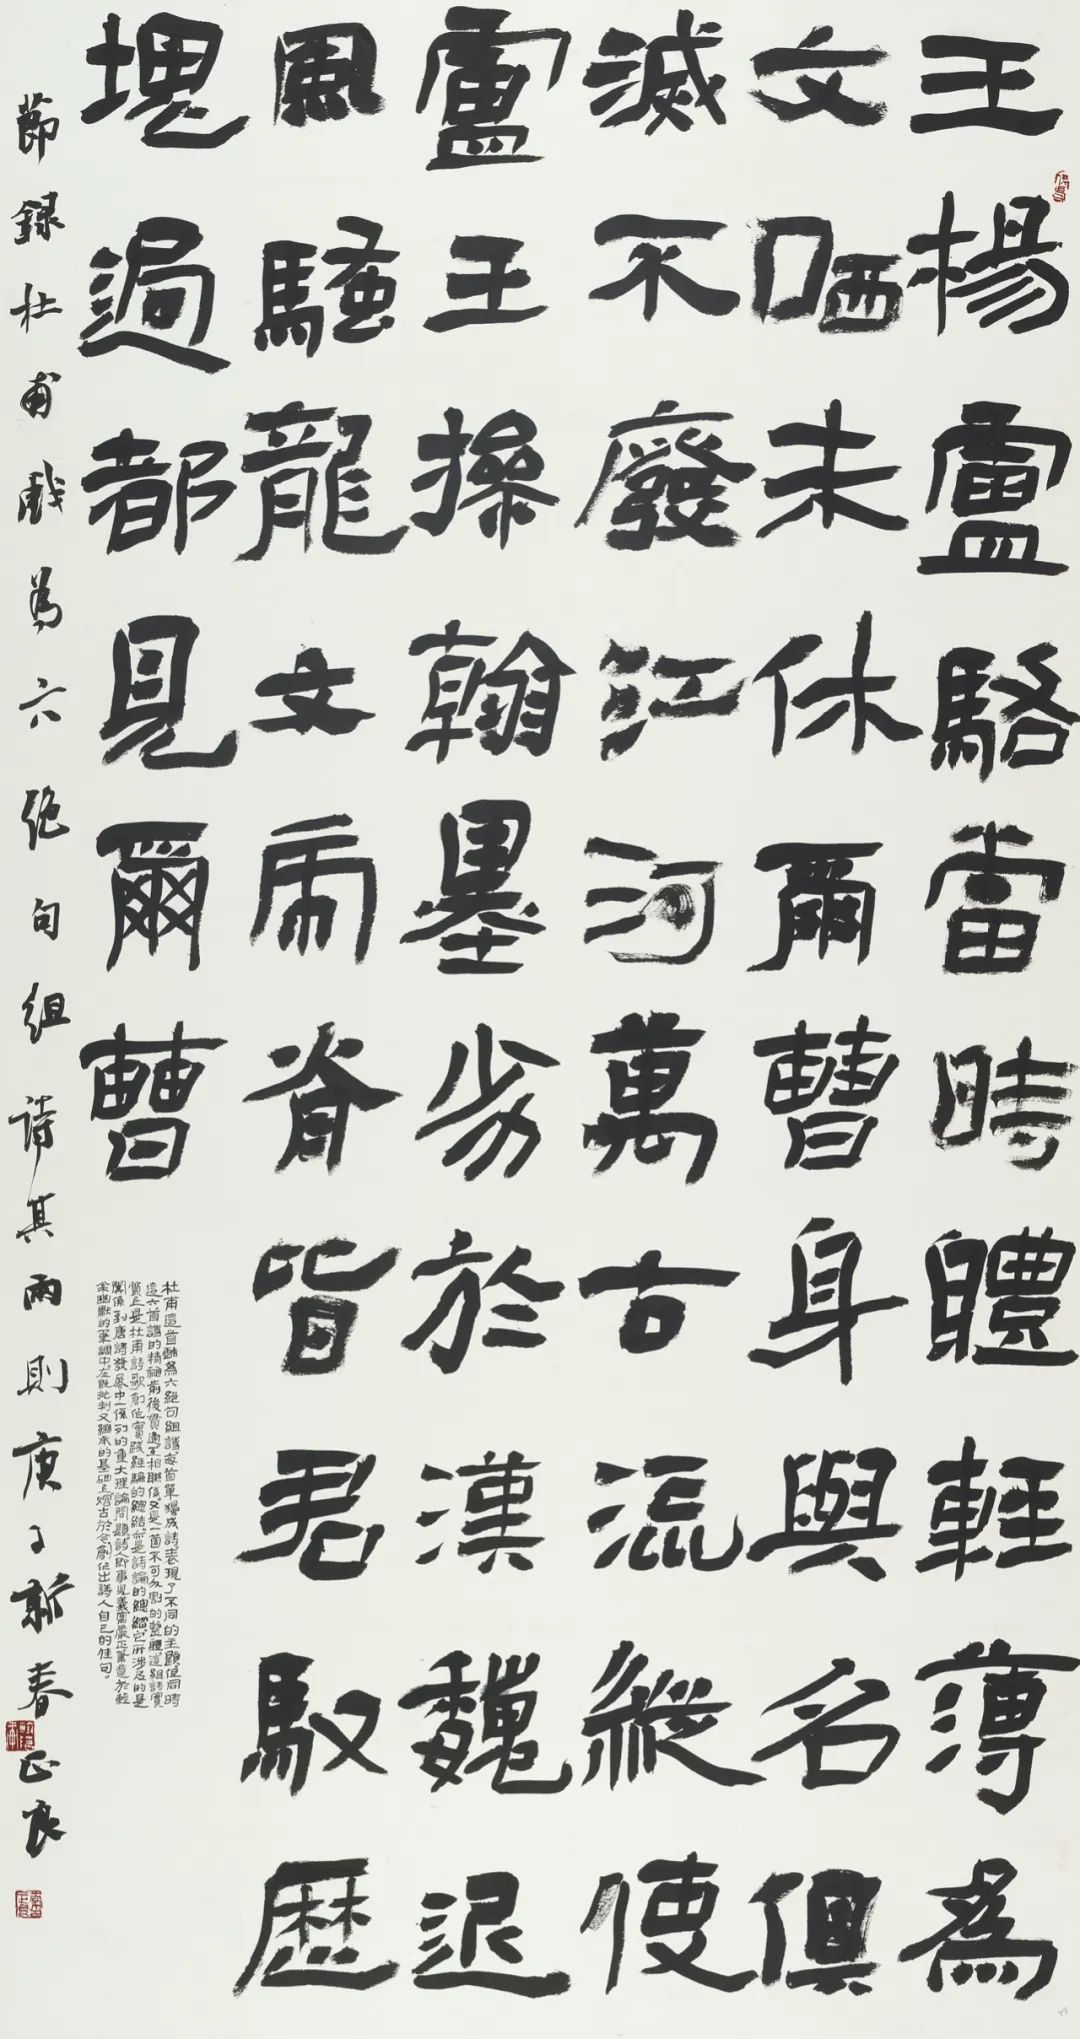 王楊盧駱當時體輕薄為
文哂未休爾曹身與名俱
滅不廢江河萬古流縱使
盧王操翰墨劣於漢魏近
風騷龍文虎脊皆君馭歷
塊過都見爾曹
杜甫這首戲為六絕句組詩每首單獨成詩表現了不同的主題但同時
這六首詩的精神前後貫通互相聯係又是一個不可分割的整體這組詩實
質上是杜甫詩歌創作實踐經驗的總結亦是詩論的總綱它所涉及的是
關係到唐詩發展中一係列的重大理論問題詩人即事見義寓嚴正筆意於輕
幽默的筆調中在既批判又繼承的基礎上熔古於今創作出詩人自己的佳句。
節錄杜甫戲為六絕句組詩其兩則庚子新春正良